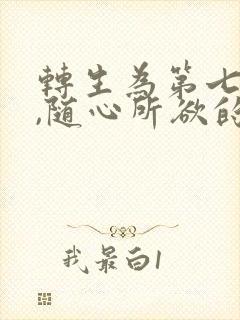 轉生為第七
,随心所欲的
我最白1